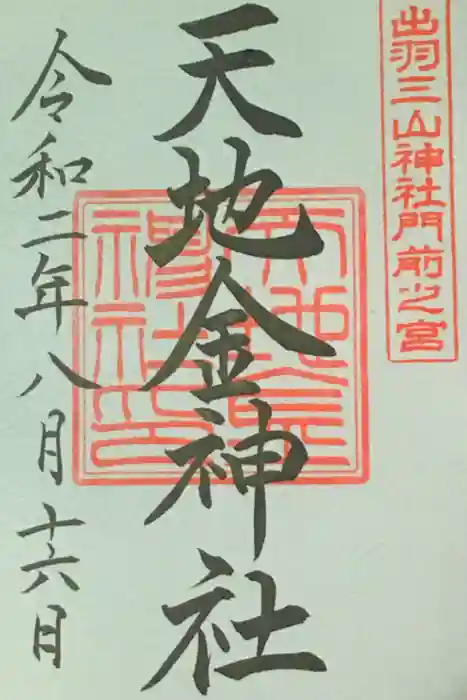 出羽三山神社門前之宮
天地金神社
令和二年八月十六日